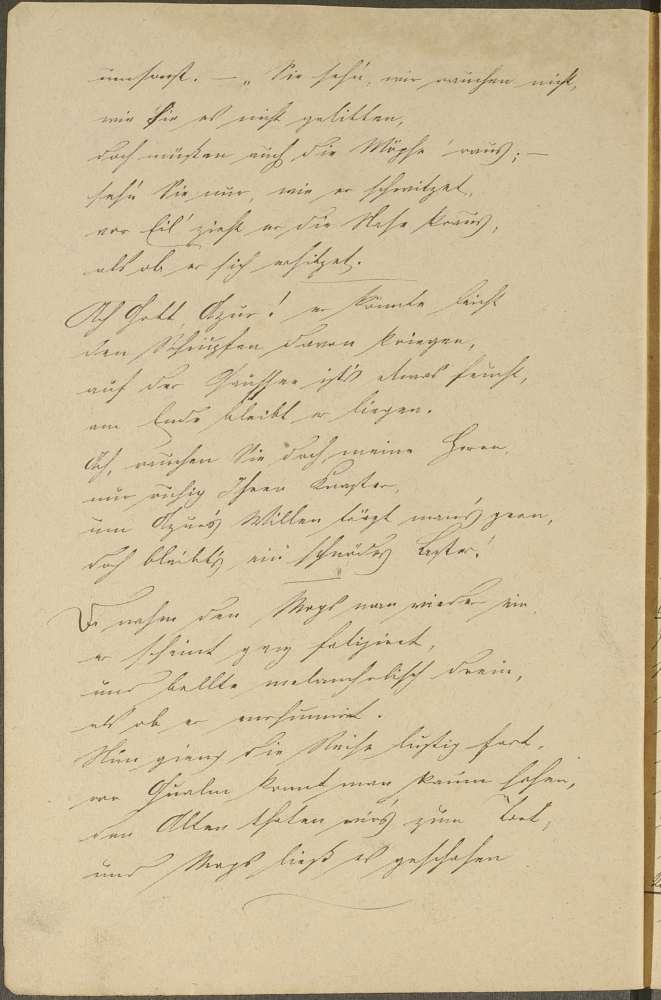 umsonst. — „Sie seh'n, wir rauchen nicht,
wie Sie es nicht gelitten,
doch müssen auch die Möpse 'raus; —
seh'n Sie nur, wie er schwitzet,
vor Eil' zieht er die Nase kraus,
als ob er sich erhitzet.
Ach Gott, Azur! er könnte leicht
den Schnupfen davon kriegen,
auf der Chaussee ist's etwas feucht,
am Ende bleibt er liegen.
Ach, rauchen Sie doch, meine Herrn,
nur ruhig Ihren Knaster,
um Azur's Willen trägt man's gern,
doch bleibt's ein schnödes Laster!
Da nahm den Mops man wieder ein,
er scheint ganz
und bellte melancholisch drein,
als ob er
Nun gieng die Reise lustig fort,
vor Qualm konnt man kaum sehen,
den Alten thaten wir's zum Tort,
und Mops ließ es geschehen